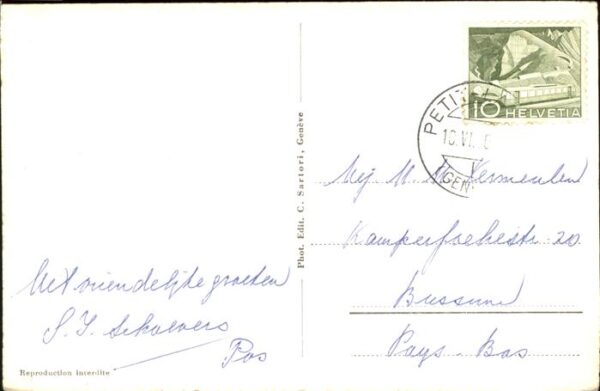 10 HELVETIA
PETIT
Phot. Edit. C. Sartori, Genève
Mej M. M. Vermeulen
Kamperfoeliestr 20
Bussum
Pays-Bas
Met vriendelijke groeten
S. J. Schoevers
Pos
Reproduction interdite